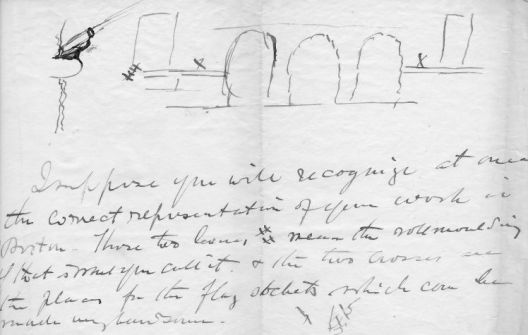 X X
I suppose you will recognize at once
the correct representation of your work in
Boston. Those two lines, # mean the roll moulding
if that is what you call it. & the two crosses are
the places for the flag sockets which can be
made any